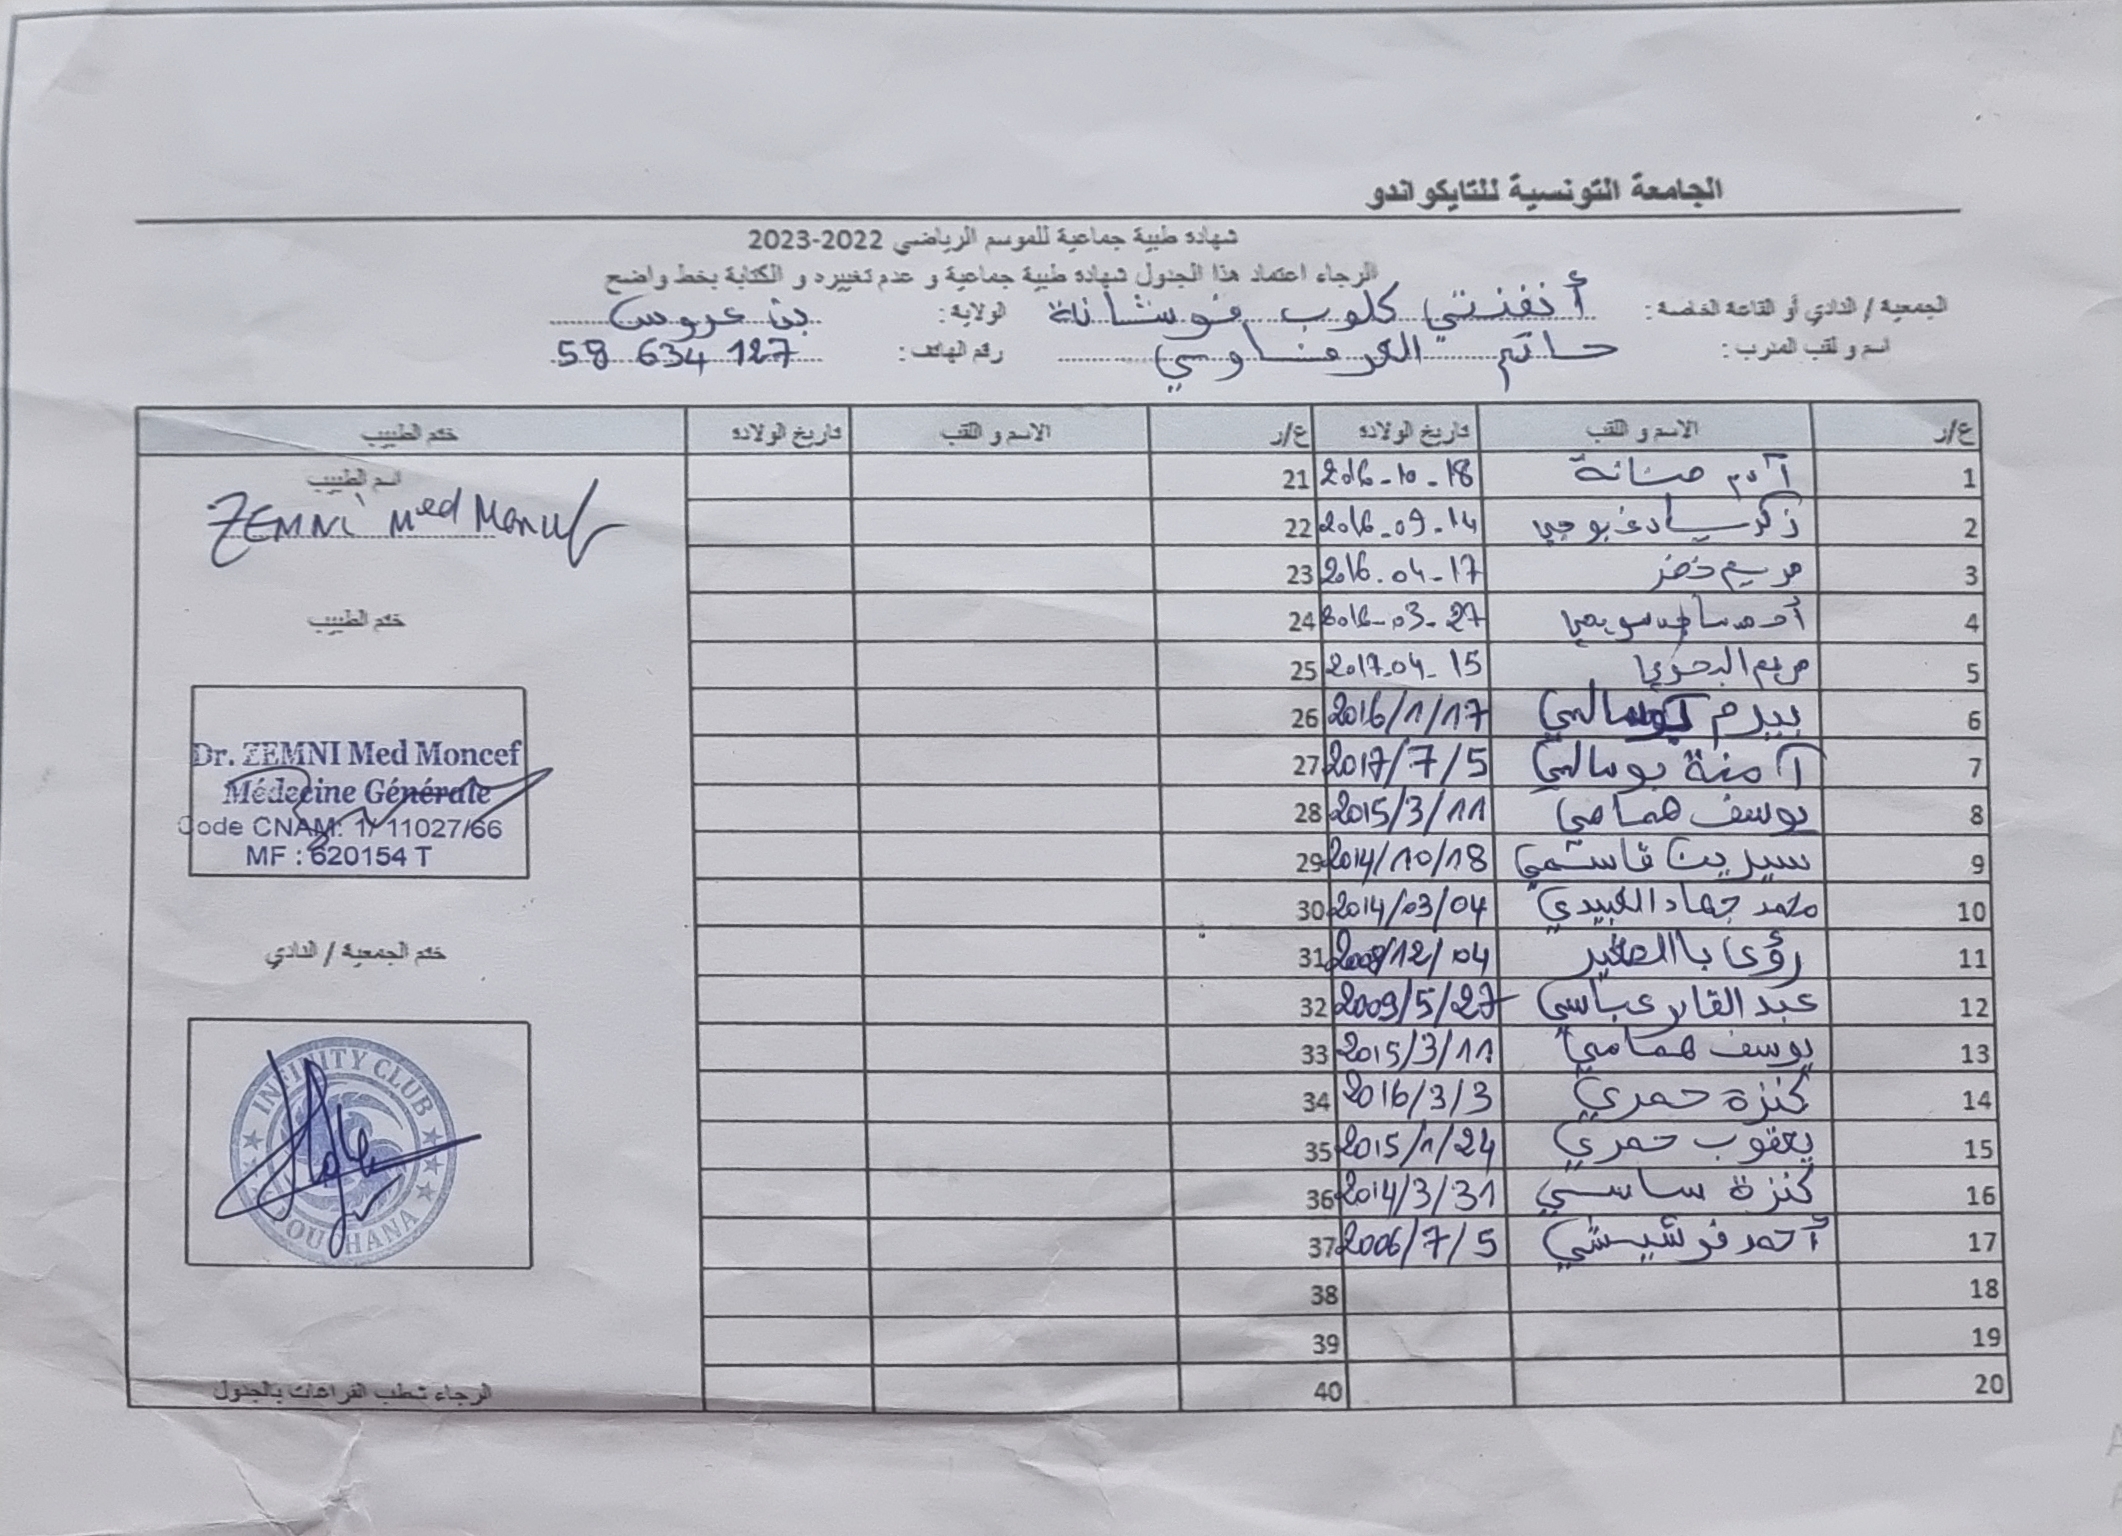 الجامعة التونسية للتايكواندو
شهادة طبية جماعية للموسم الرياضي 2022-2023
الرجاء اعتماد هذا الجدول شهادة طبية جماعية و عدم تغييره و الكتابة بخط واضح
الجمعية / النادي أو القاعة الخاصة : أنفنتي كلوب فوشانة الولاية : بن عروس
اسم و لقب المدرب : حاتم العرفاوي رقم الهاتف : 58 634 127
ع/ر الاسم و اللقب تاريخ الولادة ع/ر الاسم و اللقب تاريخ الولادة ختم الطبيب
1 آدم 2016-10-18 21
2 زكرياء 2016-09-14 22
3 مريم خضر 2016-04-17 23
4 أحمد ساجد سويحي 2016-03-27 24
5 مريم البحري 2017-04-15 25
6 بيرم بوسالمي 2016/1/17 26
7 آمنة بوسالمي 2017/7/5 27
8 يوسف همامي 2015/3/11 28
9 سيرين قاسمي 2014/10/18 29
10 محمد جهاد العبيدي 2014/03/04 30
11 رؤى بالصغير 2008/12/04 31
12 عبد القادر عباسي 2009/5/27 32
13 يوسف همامي 2015/3/11 33
14 كنزة حمدي 2016/3/3 34
15 يعقوب حمدي 2015/1/24 35
16 كنزة ساسي 2014/3/31 36
17 أحمد فرشيشي 2006/7/5 37
18 38
19 39
20 40
اسم الطبيب
ZEMNI Med Moncef
ختم الطبيب
Dr. ZEMNI Med Moncef
Médecine Générale
Code CNAM: 1/ 11027/66
MF : 620154 T
ختم الجمعية / النادي
INFINITY CLUB
FOUCHANA
الرجاء شطب الفراغات بالجدول